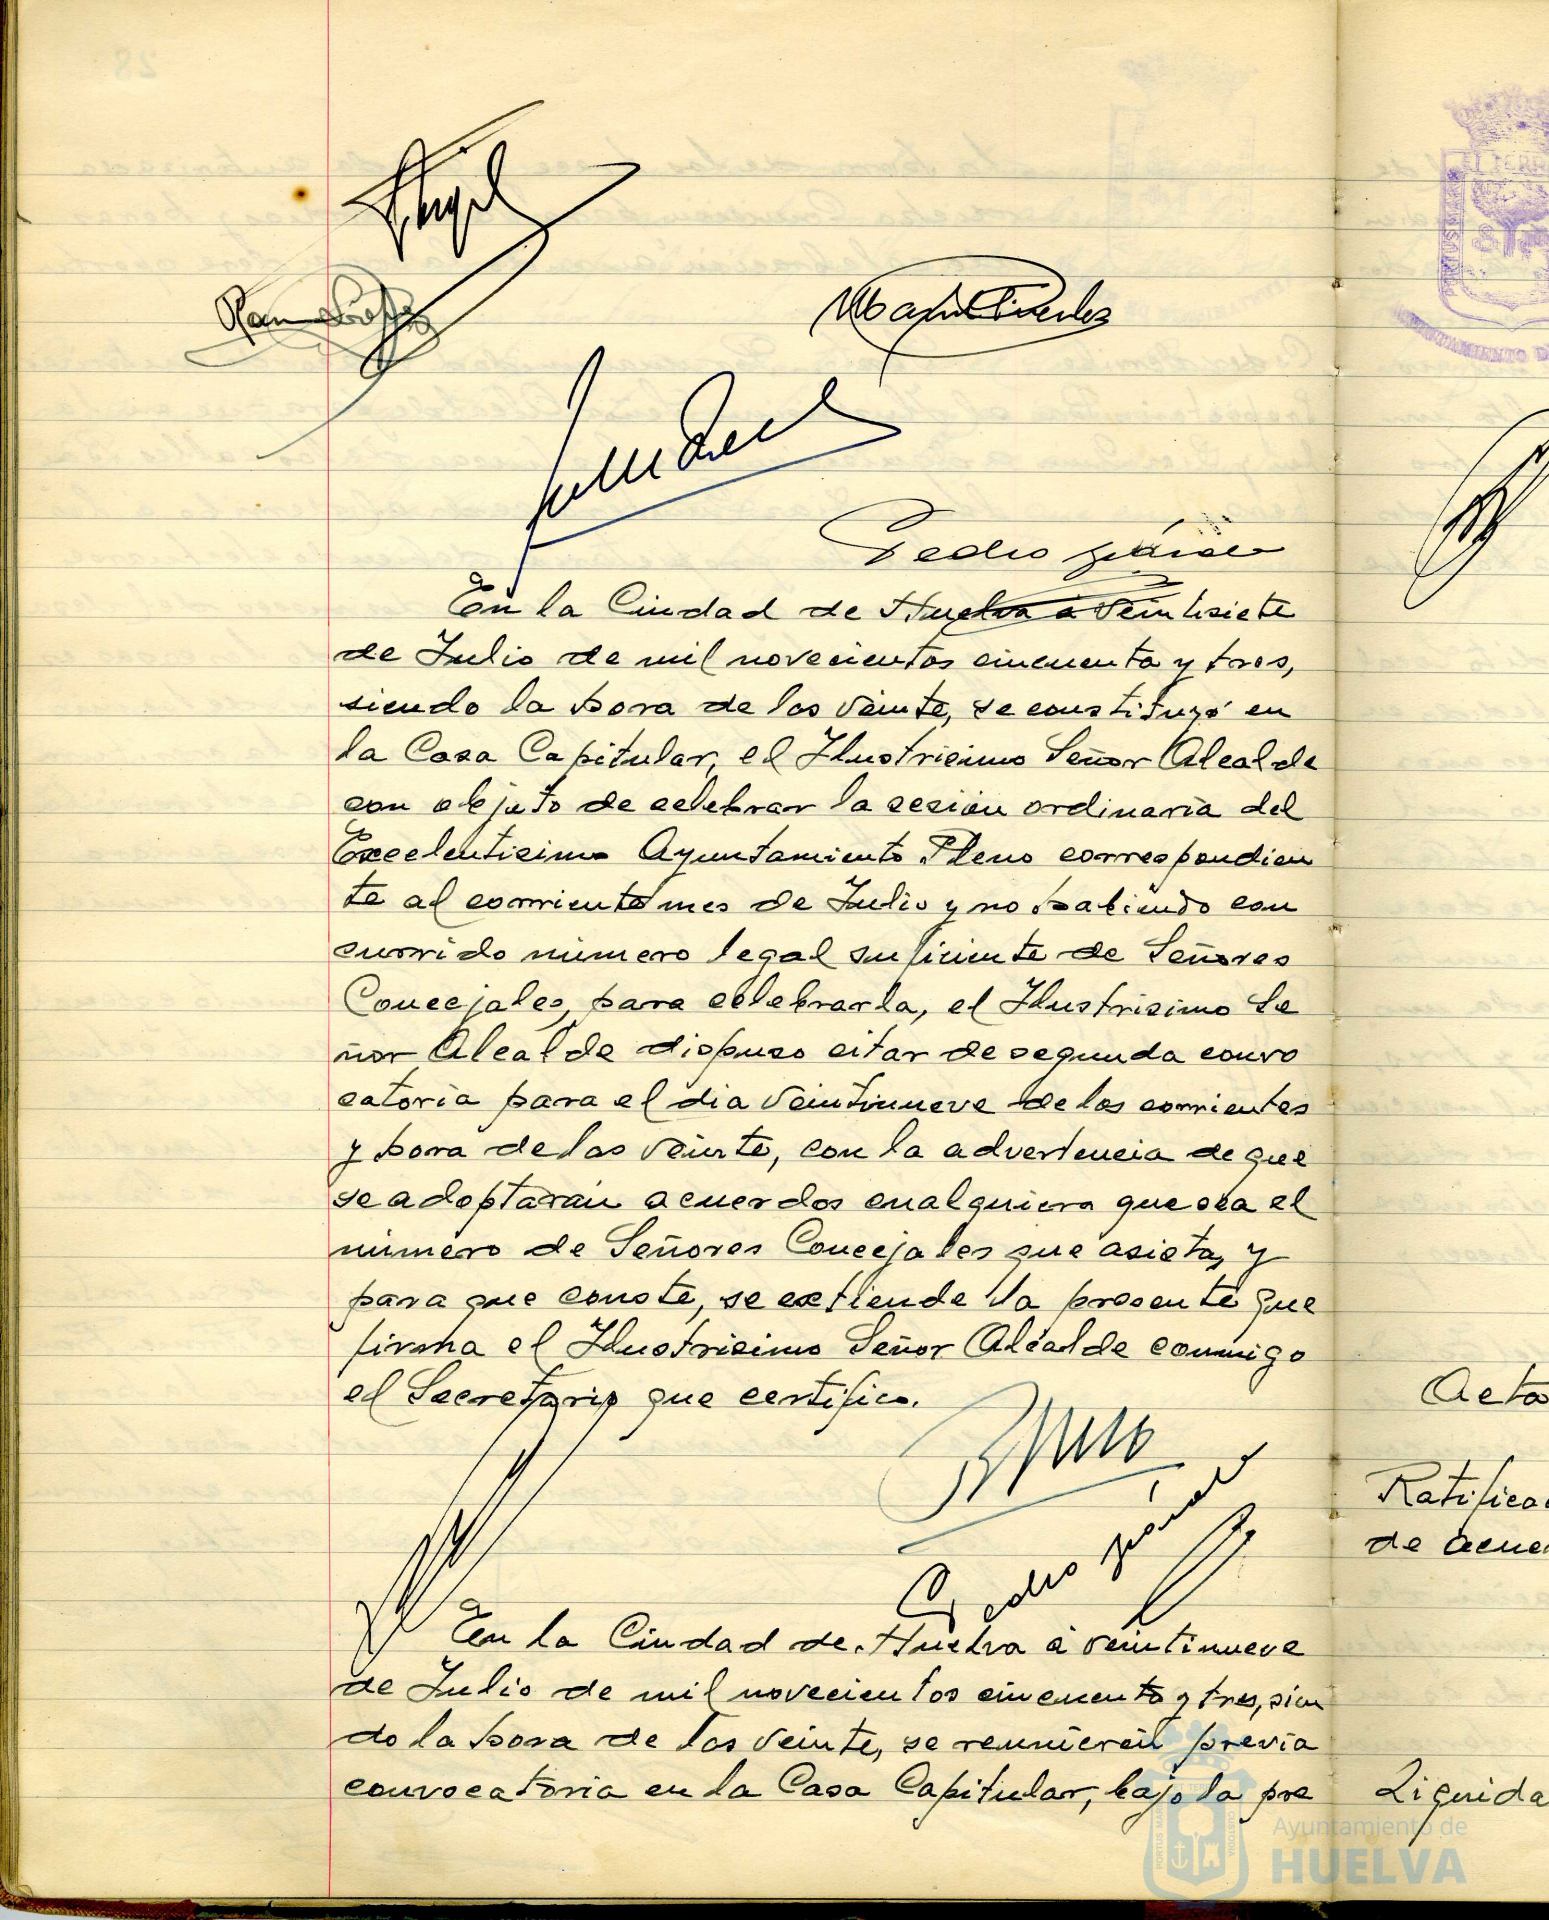 Pedro
En la Ciudad de Huelva a veintisiete
de Julio de mil novecientos cincuenta y tres,
siendo la hora de las veinte, se constituyó en
la Casa Capitular, el Ilustrisimo Señor Alcalde
con objeto de celebrar la sesión ordinaria del
Excelentisimo Ayuntamiento Pleno correspondien
te al corriente mes de Julio y no habiendo con
currido número legal suficiente de Señores
Concejales, para celebrarla, el Ilustrisimo Se
ñor Alcalde dispuso citar de segunda convo
catoria para el dia veintinueve de los corrientes
y hora de las veinte, con la advertencia de que
se adoptarán acuerdos cualquiera que sea el
número de Señores Concejales que asista, y
para que conste, se extiende la presente que
firma el Ilustrisimo Señor Alcalde conmigo
el Secretario que certifico.
Pedro
En la Ciudad de Huelva a veintinueve
de Julio de mil novecientos cincuenta y tres, sien
do la hora de las veinte, se reunieron previa
convocatoria en la Casa Capitular, bajo la pre
Acta
Ratifica
de acue
Liquida
Ayuntamiento de
HUELVA